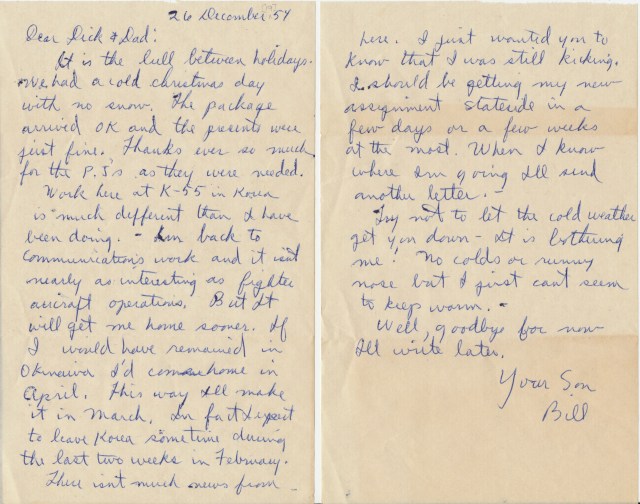 26 December 54
Dear Dick & Dad:
It is the lull between holidays.
We had a cold christmas day
with no snow. The package
arrived OK and the presents were
just fine. Thanks ever so much
for the P.J's as they were needed.
Work here at K-55 in Korea
is much different than I have
been doing. - I'm back to
communications work and it isn't
nearly as interesting as fighter
aircraft operations. But It
will get me home sooner. If
I would have remained in
Okinawa I'd come home in
April. This way I'll make
it in March. In fact I expect
to leave Korea sometime during
the last two weeks in February.
There isn't much news from -
here. I just wanted you to
know that I was still kicking.
I should be getting my new
assignment stateside in a
few days or a few weeks
at the most. When I know
where I'm going I'll send
another letter. -
Try not to let the cold weather
get you down - It is bothering
me! No colds or runny
nose but I just can't seem
to keep warm. -
Well, goodbye for now
I'll write later.
Your Son
Bill